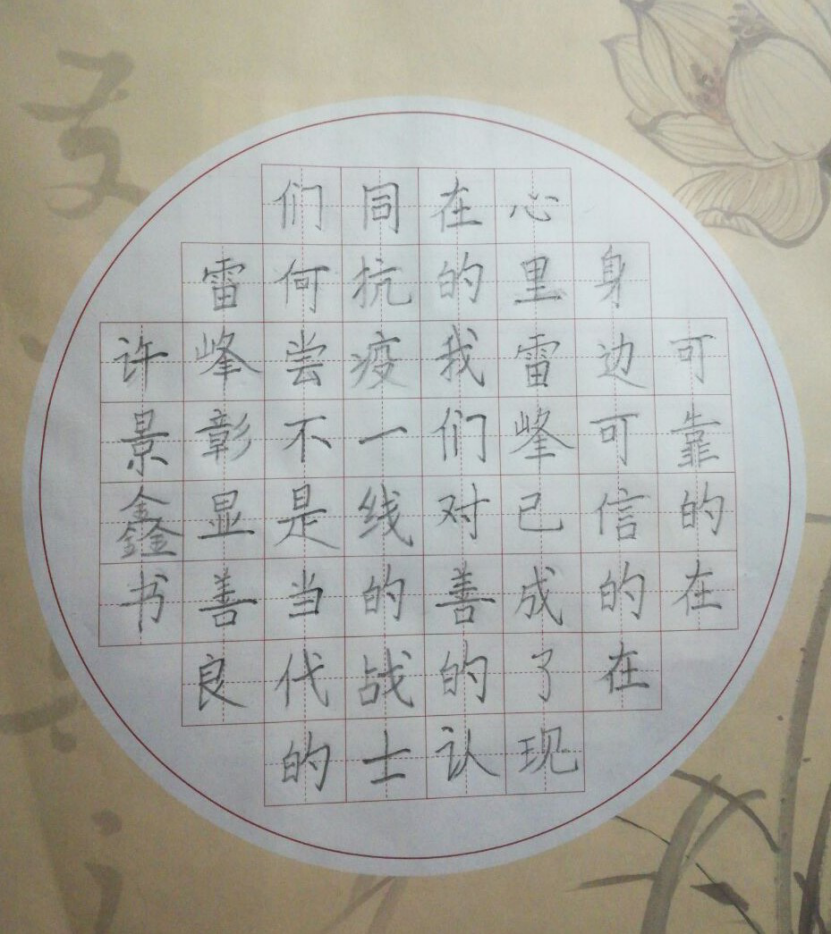 可靠的在
身边可信的在
心里雷峰已成了现
在的我们对善的认
同抗疫一线的战士
们何尝不是当代的
雷峰彰显善良
许景鑫书